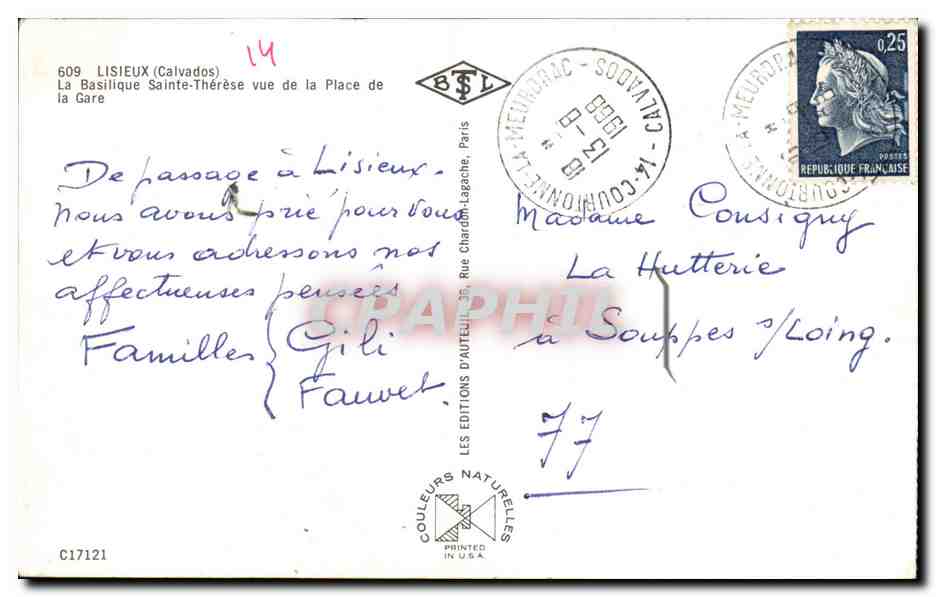 14
609 LISIEUX (Calvados)
La Basilique Sainte-Thérèse vue de la Place de
la Gare
BTSL
De passage à Lisieux.
nous avons prié pour vous
et vous adressons nos
affectueuses pensées
Familles { Gili
Fauvet.
COULEURS NATURELLES
PRINTED
IN U.S.A.
C17121
LES EDITIONS D'AUTEUIL, 36, Rue Chardon-Lagache, Paris
CPAPHIL
14-COURTONNE-LA-MEURDRAC - CALVADOS
18 H
13-8
1968
0,25
POSTES
REPUBLIQUE FRANÇAISE
Madame Consigny
La Hutterie
à Souppes s/Loing.
77